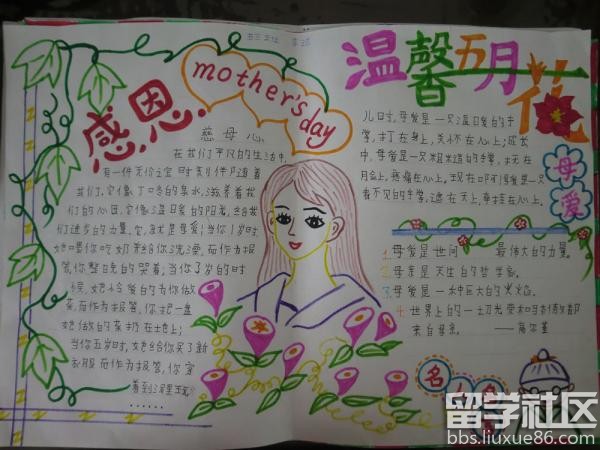 感恩
mother's day
慈母心
在我们平凡的生活中,
有一件无价之宝时刻伴随着
我们,它像叮咚的泉水,滋养着我
们的心田,它像温暖的阳光,给我
们进步的力量,它就是母爱!当你1岁时
她喂你吃奶并给你洗澡,而作为报
答,你整晚的哭着,当你了岁的时
候,她怜爱的为你做
菜,而作为报答,你把一盘
她做的菜扔在地上;
当你五岁时,她给你买了新
衣服,而作为报答,你穿
着到泥里玩
······
温馨五月花
儿时,母爱是一只温暖的手
掌,打在身上,关怀在心上;成长
中,母爱是一只粗糙的手掌,
疼痛在心上,现在
看不见的手掌,远在天上,牵挂在心上。
母爱
1.母爱是世间最伟大的力量。
2.母亲是天生的哲学家。
3.母爱是一种巨大的火焰。
4.世界上的一切光荣和骄傲都
来自母亲。——高尔基
名人
留学社区
bbs.liuxue86.com